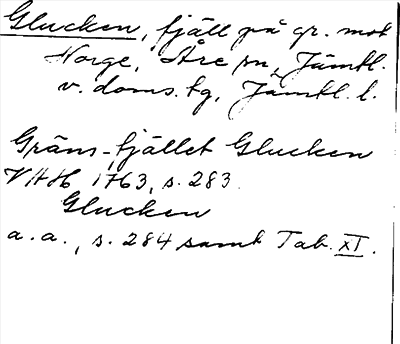 Glucken, fjäll på gr. mot
Norge, Åre sn, Jämtl.
v. doms. tg, Jämtl. l.
Gräns-fjället Glucken
VAH 1763, s. 283.
Glucken
a. a., s. 284 samt Tab. XI.